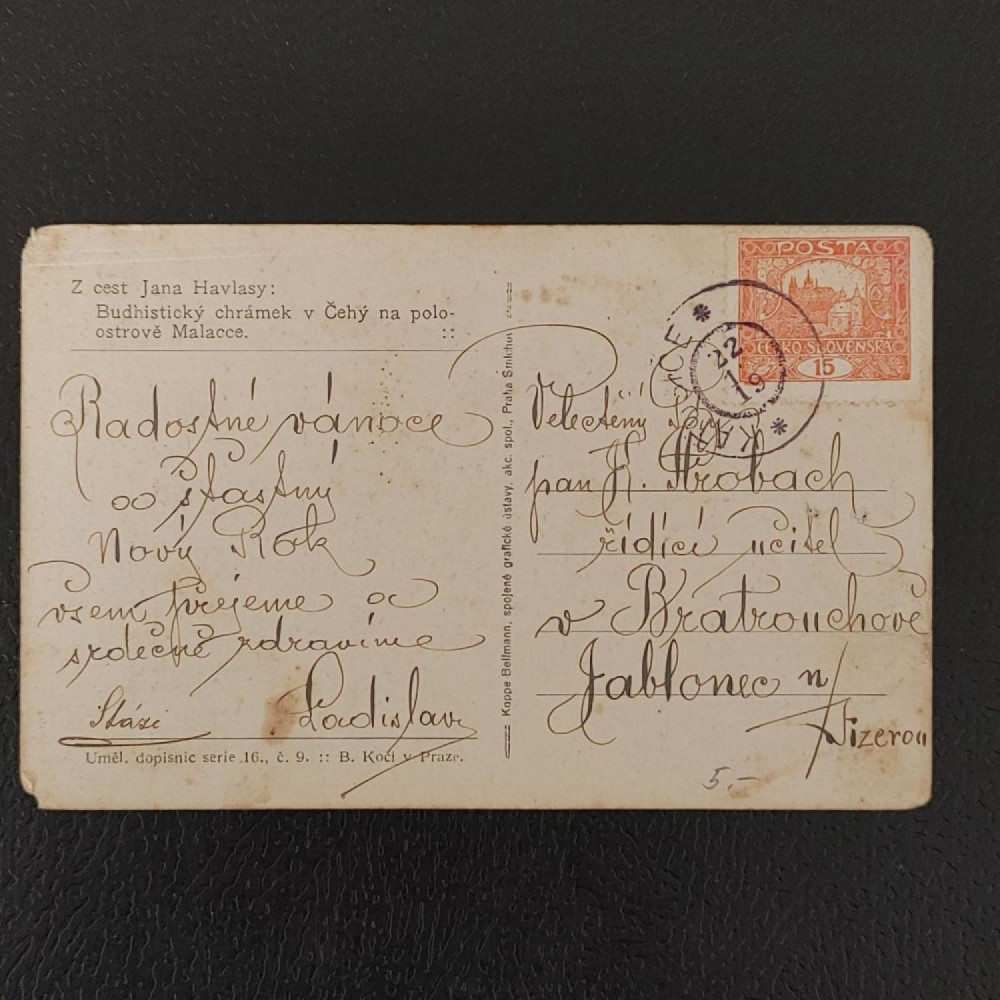 Z cest Jana Havlasy:
Budhistický chrámek v Čehý na polo-
ostrově Malacce. ::
Radostné vánoce
a šťastný
Nový Rok
všem přejeme a
srdečně zdravíme
Stázi Ladislav
Uměl. dopisnic serie 16., č. 9. :: B. Kočí v Praze.
Koppe Bellmann, spojené grafické ústavy, akc. spol., Praha Smíchov
POSTA
CESKO-SLOVENSKA
15
22
19
Velectěný Pán
pan K. Strobach
řídící učitel
v Bratrouchově
Jablonec n/
Jizerou
5.-